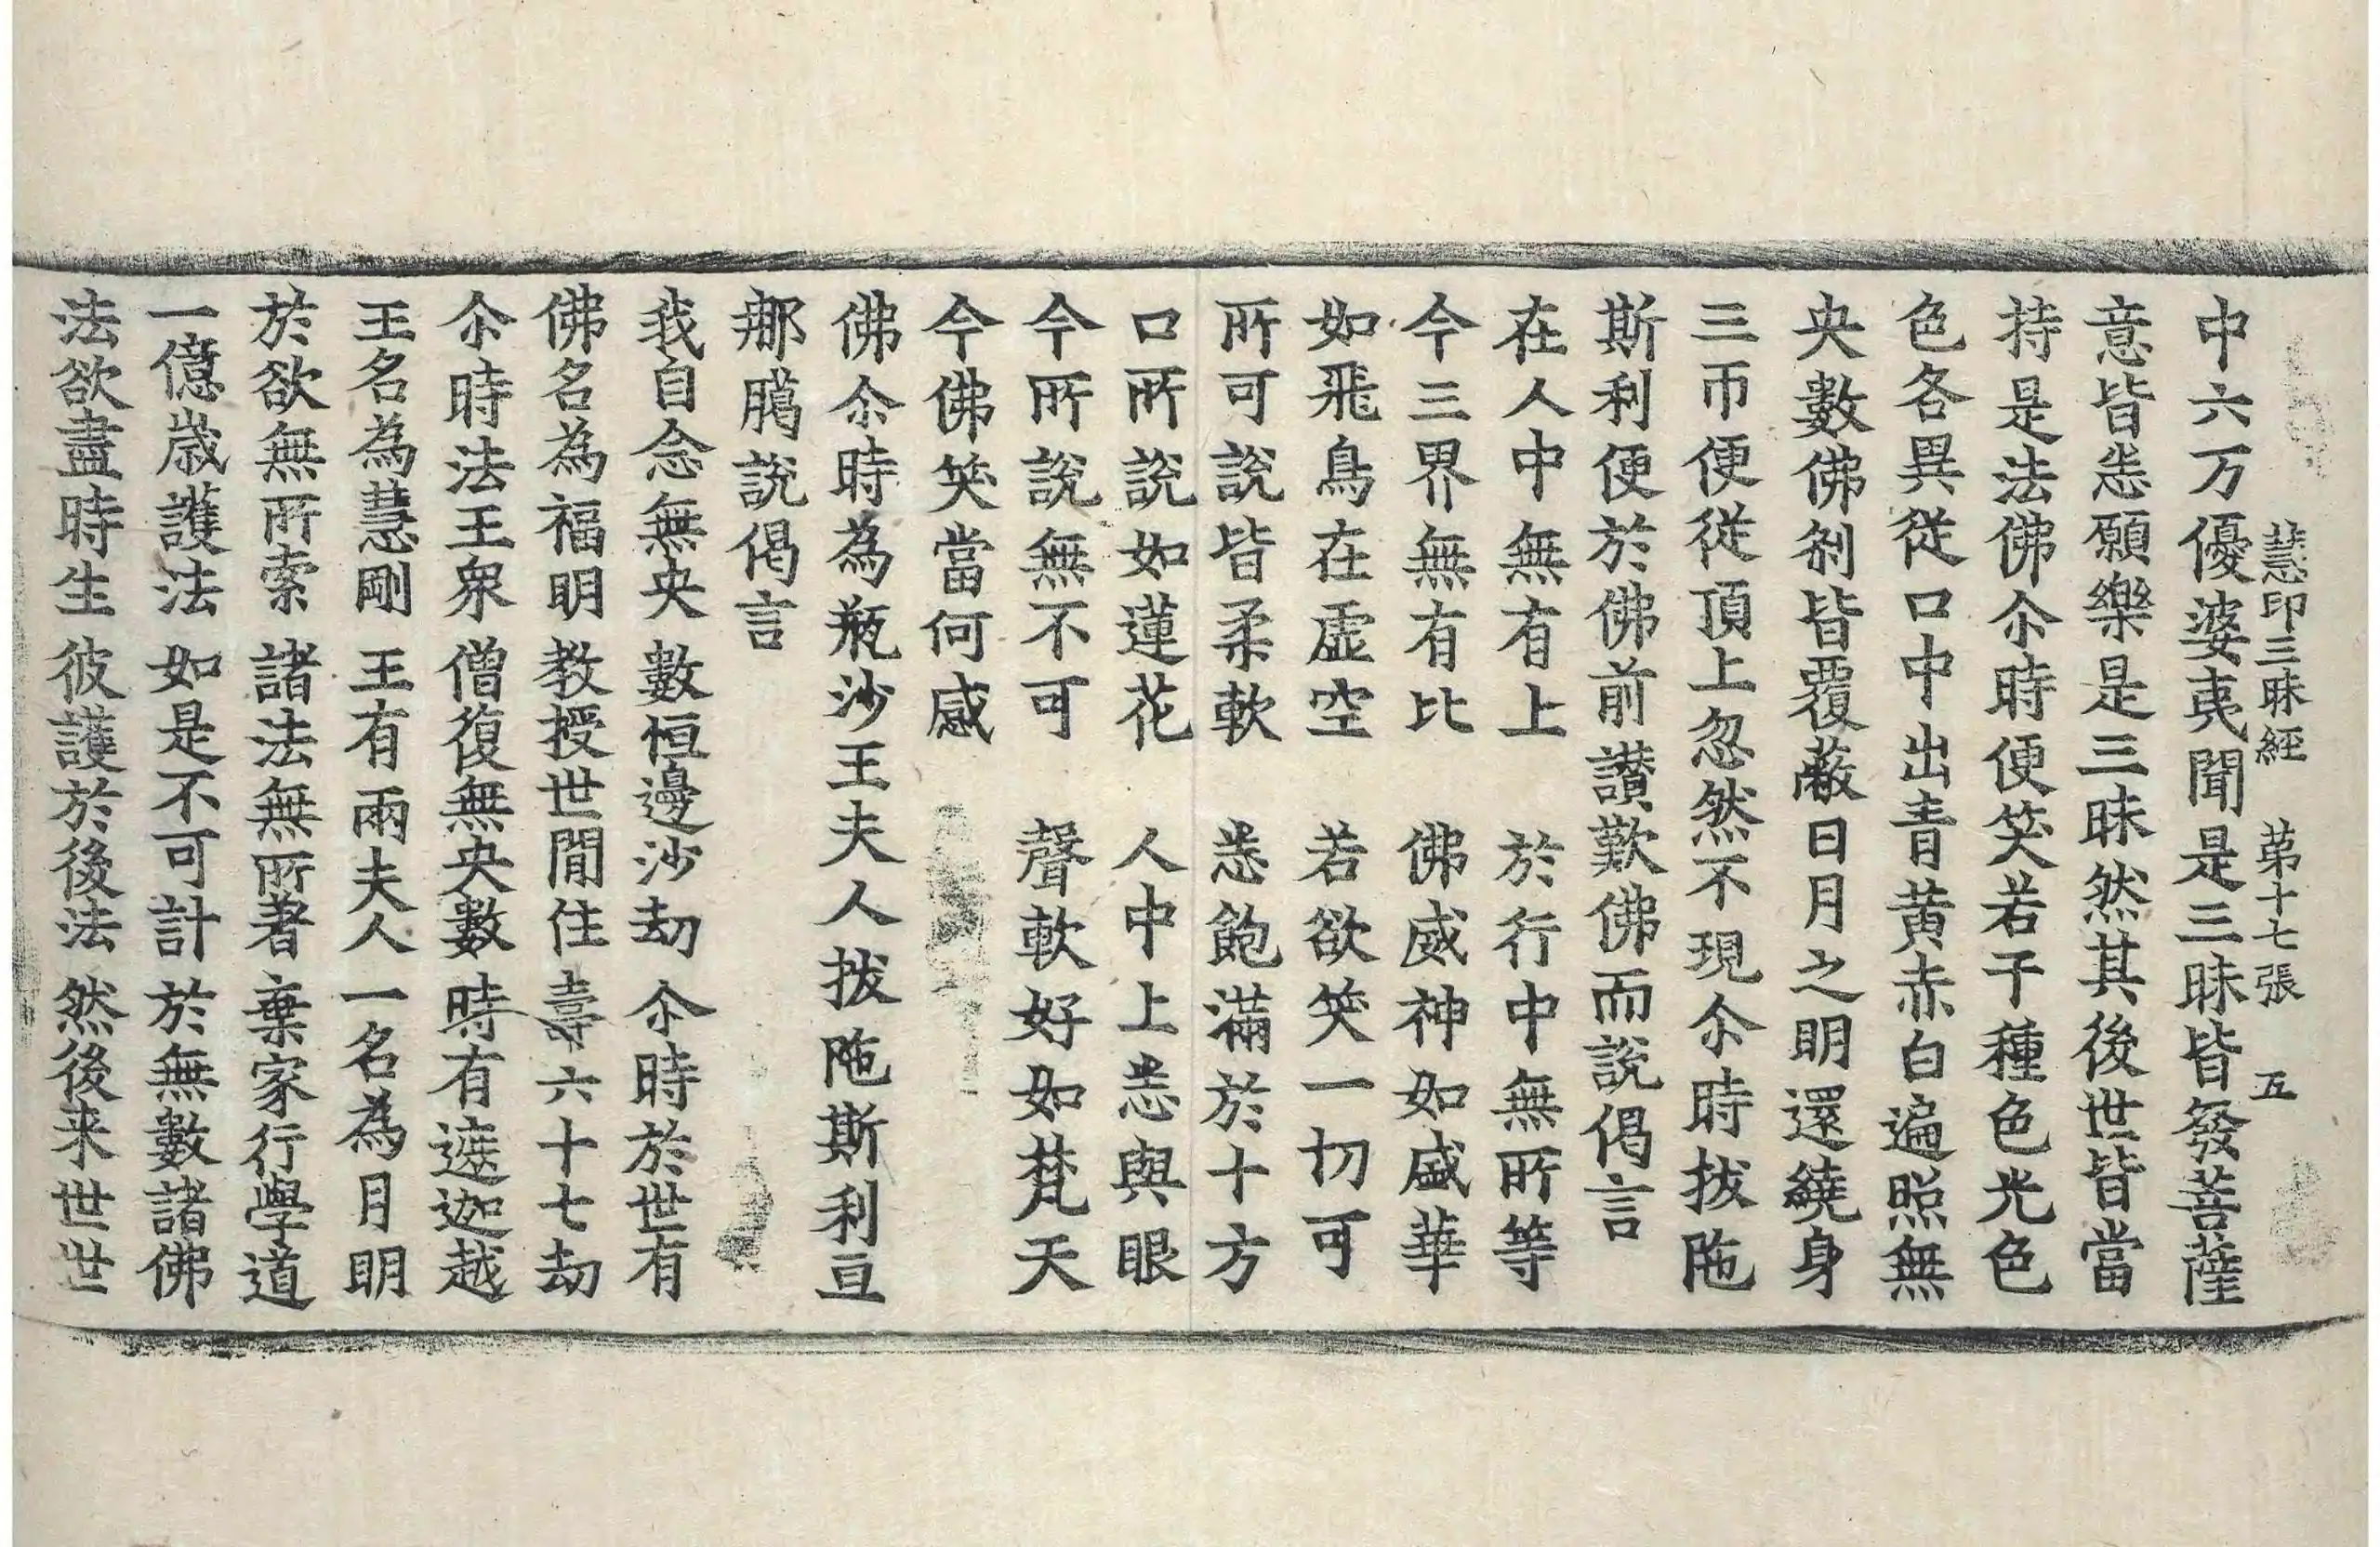 慧印三昧經 苐十七張 五
中六万優婆夷聞是三昧皆發菩薩
意皆悉願樂是三昧然其後世皆當
持是法佛尒時便笑若干種色光色
色各異從口中出青黄赤白遍照無
央數佛刹皆覆蔽日月之明還繞身
三帀便從頂上忽然不現尒時拔陁
斯利便於佛前讃歎佛而說偈言
在人中無有上 於行中無所等
今三界無有比 佛威神如盛華
如飛鳥在虛空 若欲笑一切可
所可說皆柔軟 悉飽滿於十方
口所說如蓮花 人中上悉與眼
今所說無不可 聲軟好如梵天
今佛笑當何感
佛尒時為瓶沙王夫人拔陁斯利亘
那臈說偈言
我自念無央 數恒邊沙劫 尒時於世有
佛名為福明 教授世間住 壽六十七劫
尒時法王衆 僧復無央數 時有遮迦越
王名為慧剛 王有兩夫人 一名為月明
於欲無所索 諸法無所著 棄家行學道
一億歲護法 如是不可計 於無數諸佛
法欲盡時生 彼護於後法 然後来世世